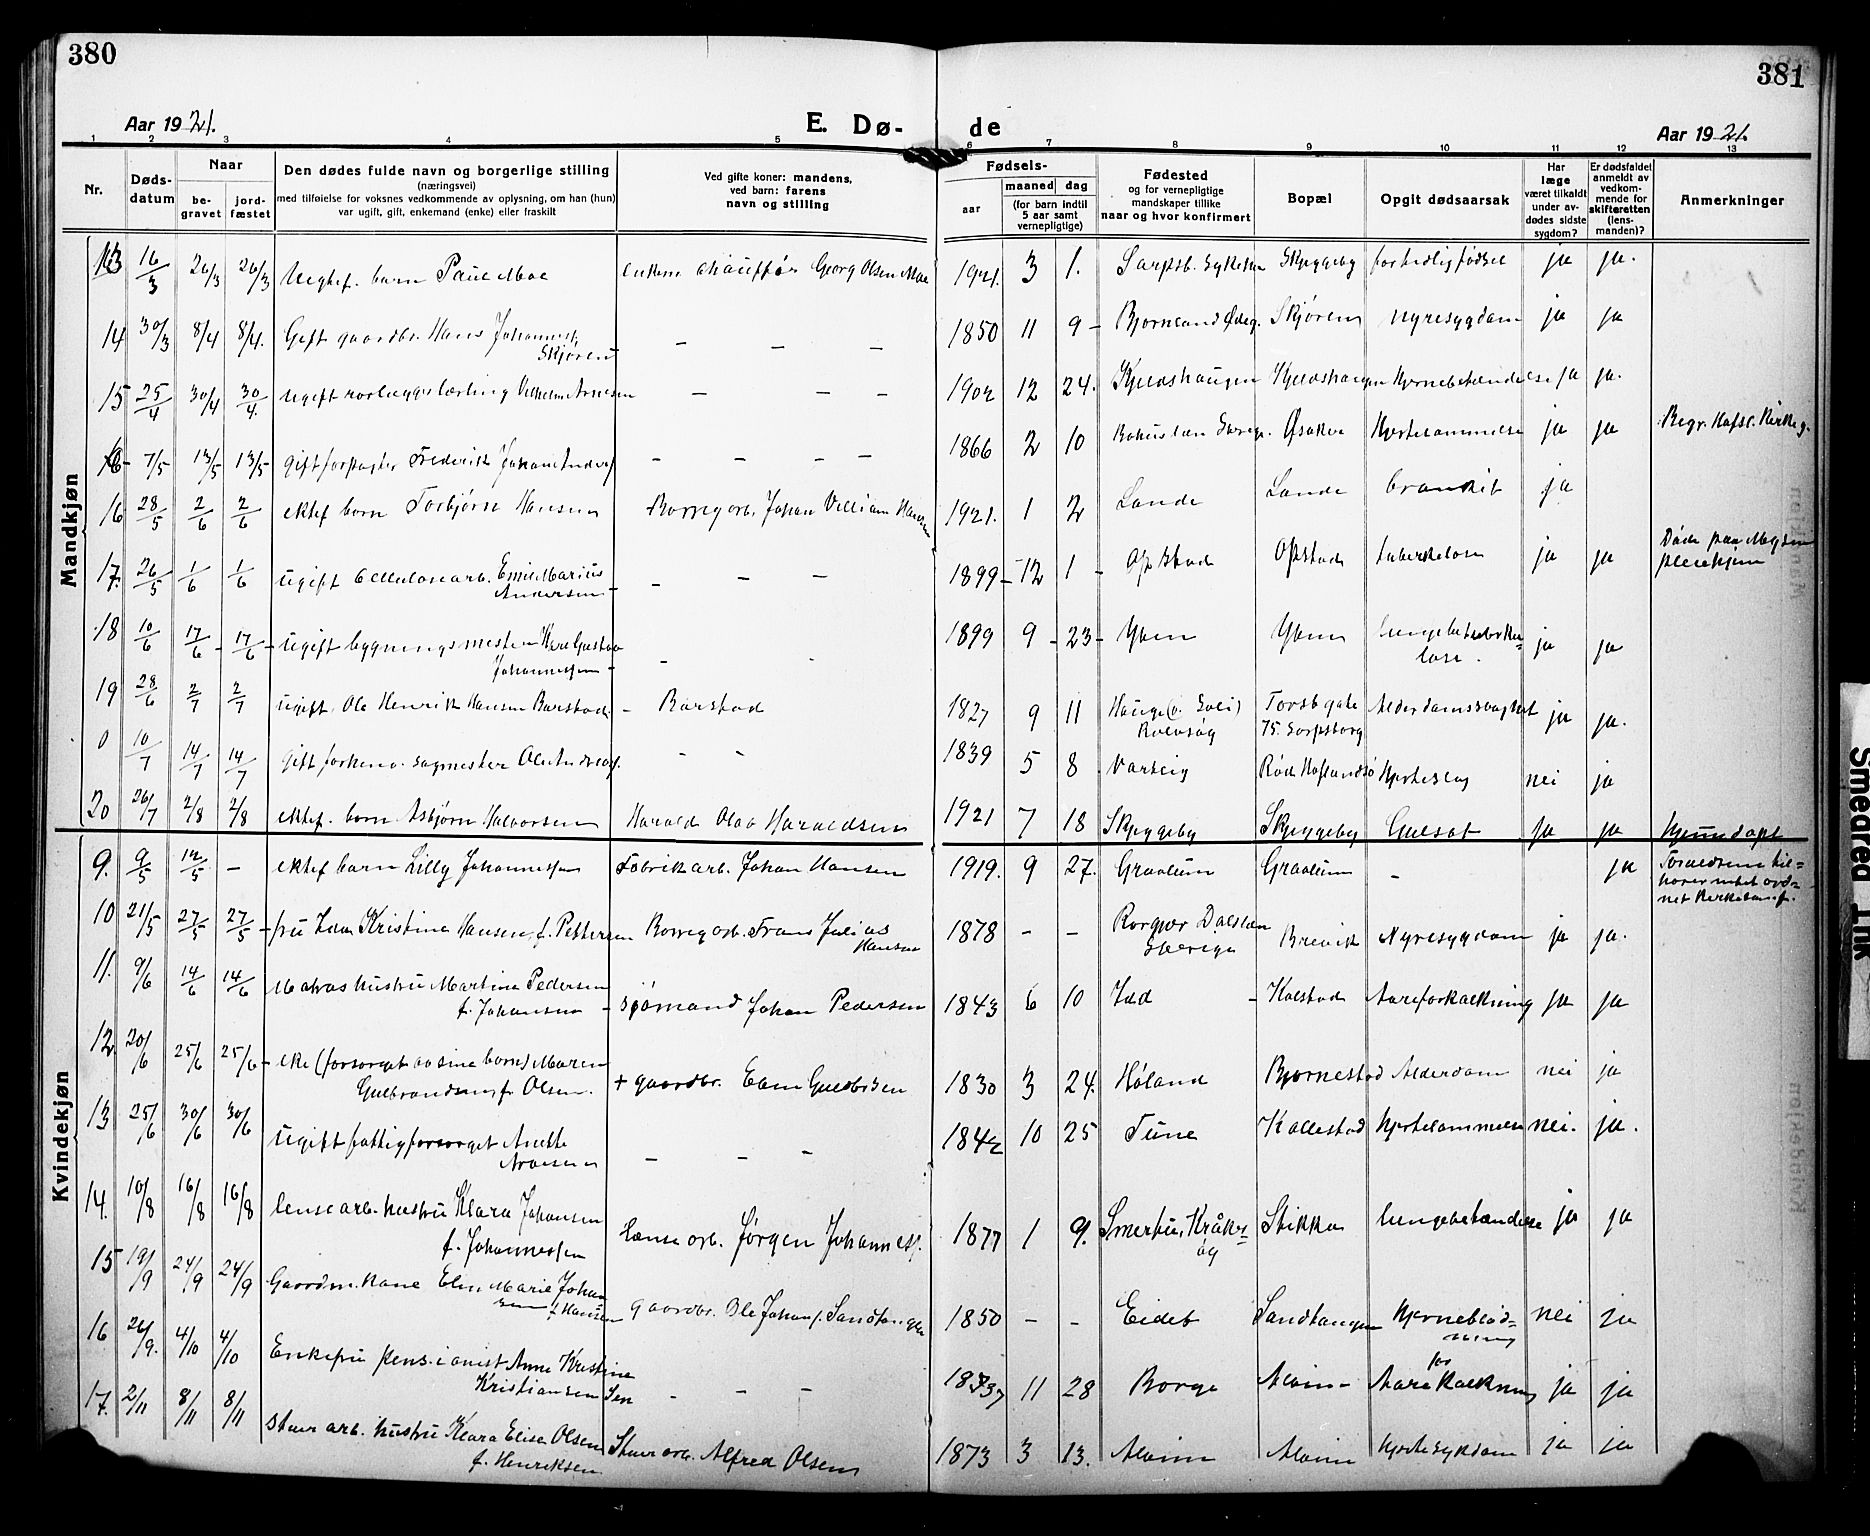 380
381
Aar 1921.
E. Dø-
de
Aar 1921.
1 2 3 4 5 6 7 8 9 10 11 12 13
Nr.
Døds-
datum
Naar
be-
gravet
jord-
fæstet
Den dødes fulde navn og borgerlige stilling
(næringsvei)
med tilføielse for voksnes vedkommende av oplysning, om han (hun)
var ugift, gift, enkemand (enke) eller fraskilt
Ved gifte koner: mandens,
ved barn: farens
navn og stilling
Fødsels-
aar
maaned
dag
(for barn indtil
5 aar samt
vernepligtige)
Fødested
og for vernepligtige
mandskaper tillike
naar og hvor konfirmert
Bopæl
Opgit dødsaarsak
Har
læge
været tilkaldt
under av-
dødes sidste
sygdom?
Er dødsfaldet
anmeldt av
vedkom-
mende for
skifteretten
(lens-
manden)?
Anmerkninger
Mandkjøn
13 16/3 26/3 26/3 barn Paul Moe chauffør Georg Olsen Moe 1921. 3 1. Sarpsb. Sykehus Skjeggeby fortidlig fødsel ja ja.
14 30/3 8/4 8/4. Gift gaardbr. Hans Johannes. 1850 11 9 - Skjøren nyresygdom ja ja
Skjøren - - - -
15 25/4 30/4 30/4. ugift rørlæggerlærling Vilhelm Arnesen - - - 1902 12 24. Kjeldshaugen Kjeldshaugen Hjernebetændelse ja ja.
6 - 7/5 13/5 13/5 gift forpagter Frederik Johan Anders. - - - - 1866 2 10 Bohuslen Sverige. Øsaker Hjertelammelse ja ja Begr. Hafsl. Kirkeg.
16 28/5 2/6 2/6 ektef barn Torbjørn Hansen Borregarb. Johan Villiam Hansen 1921. 1 2 Lande Lande bronkit ja
17. 26/5 1/6 1/6 ugift Cellulosearb. Emil Marius - - - 1899 - 12 1 - Opstad Opstad tuberkelose ja ja Døde paa Mysen
Andersen - pleiehjem
18 10/6 17/6 - 17/6 - ugift bygningsmester Gustav 1899 9 - 23 - Yven Yven ja ja
Johannessen - - lose.
19 28/6 2/7 2/7 ugift. Ole Henrik Hansen Barstad. - Barstad 1827 9 11 Hauge Torsbgate Alderdomssvaghet ja ja.
Rolvsøy 75. Sarpsborg
0 10/7 14/7 14/7 Gift sagmester Ole Andreas. - - 1839 5 8 Varteig Hjerteslag nei ja
20 26/7 2/8 2/8 ektef. barn Asbjørn Halvorsen Harald Olav Haraldsen 1921 7 18 Skjeggeby Skjeggeby Gulsot ja ja Hjemmedøpt
Kvindekjøn
9. 9/5 12/5 - ektef barn Lilly Johannessen Fabrikarb. Johan Hansen 1919. 9 27. Graalum Graalum - ja
10 21/5 27/5 27/5 - fru Kristine Hansen, f. Pettersen Borregarb. Frans Julius 1878 - - Dalsland Brevik Nyresygdom ja ja.
Hansen Sverige
11. 9/6 14/6 14/6 Matros hustru Martine Pedersen 1843 6 10 Idd - Kalstad Aareforkalkning ja ja
f. Johansen - sjømand Johan Pedersen
12. 20/6 25/6 25/6 - eke (forsørget av sine børn) Maren 1830 3 24. Høland Bjørnestad Alderdom nei ja
Gulbrandsen f. Olsen. + gaardbr. Gulbrdsen
13 25/6 30/6 30/6 Ugift fattigforsørget Anette 1842 10 25 Tune Kallestad Hjertelammelse nei. ja.
Arnesen - - -
14. 10/8 16/8 16/8 lensearb. hustru Klara Johansen Lensearb. Jørgen Johanness. 1877 1 9. Stikka lungebetændelse ja ja
f. Johannessen
15 19/9 24/9 24/9 Gaardm. kone Marie Johan gaardbr. Ole Johans. Sandtangen 1850 - - Eideb Sandtangen Hjerneblød- nei ja
sen f Hansen ning
16 26/9. 4/10 4/10 Enkefru pensionist Anne Kristine 11 28 Borge Alvim - Aareforkalkning ja ja
Kristiansen - - -
17. 2/11 8/11 8/11 Stuerarb. hustru Klara Elise Olsen Stuerarb. Alfred Olsen 1873 3 13. Alvim Alvim Hjertesykdom ja ja
f. Henriksen
Smedred Ink